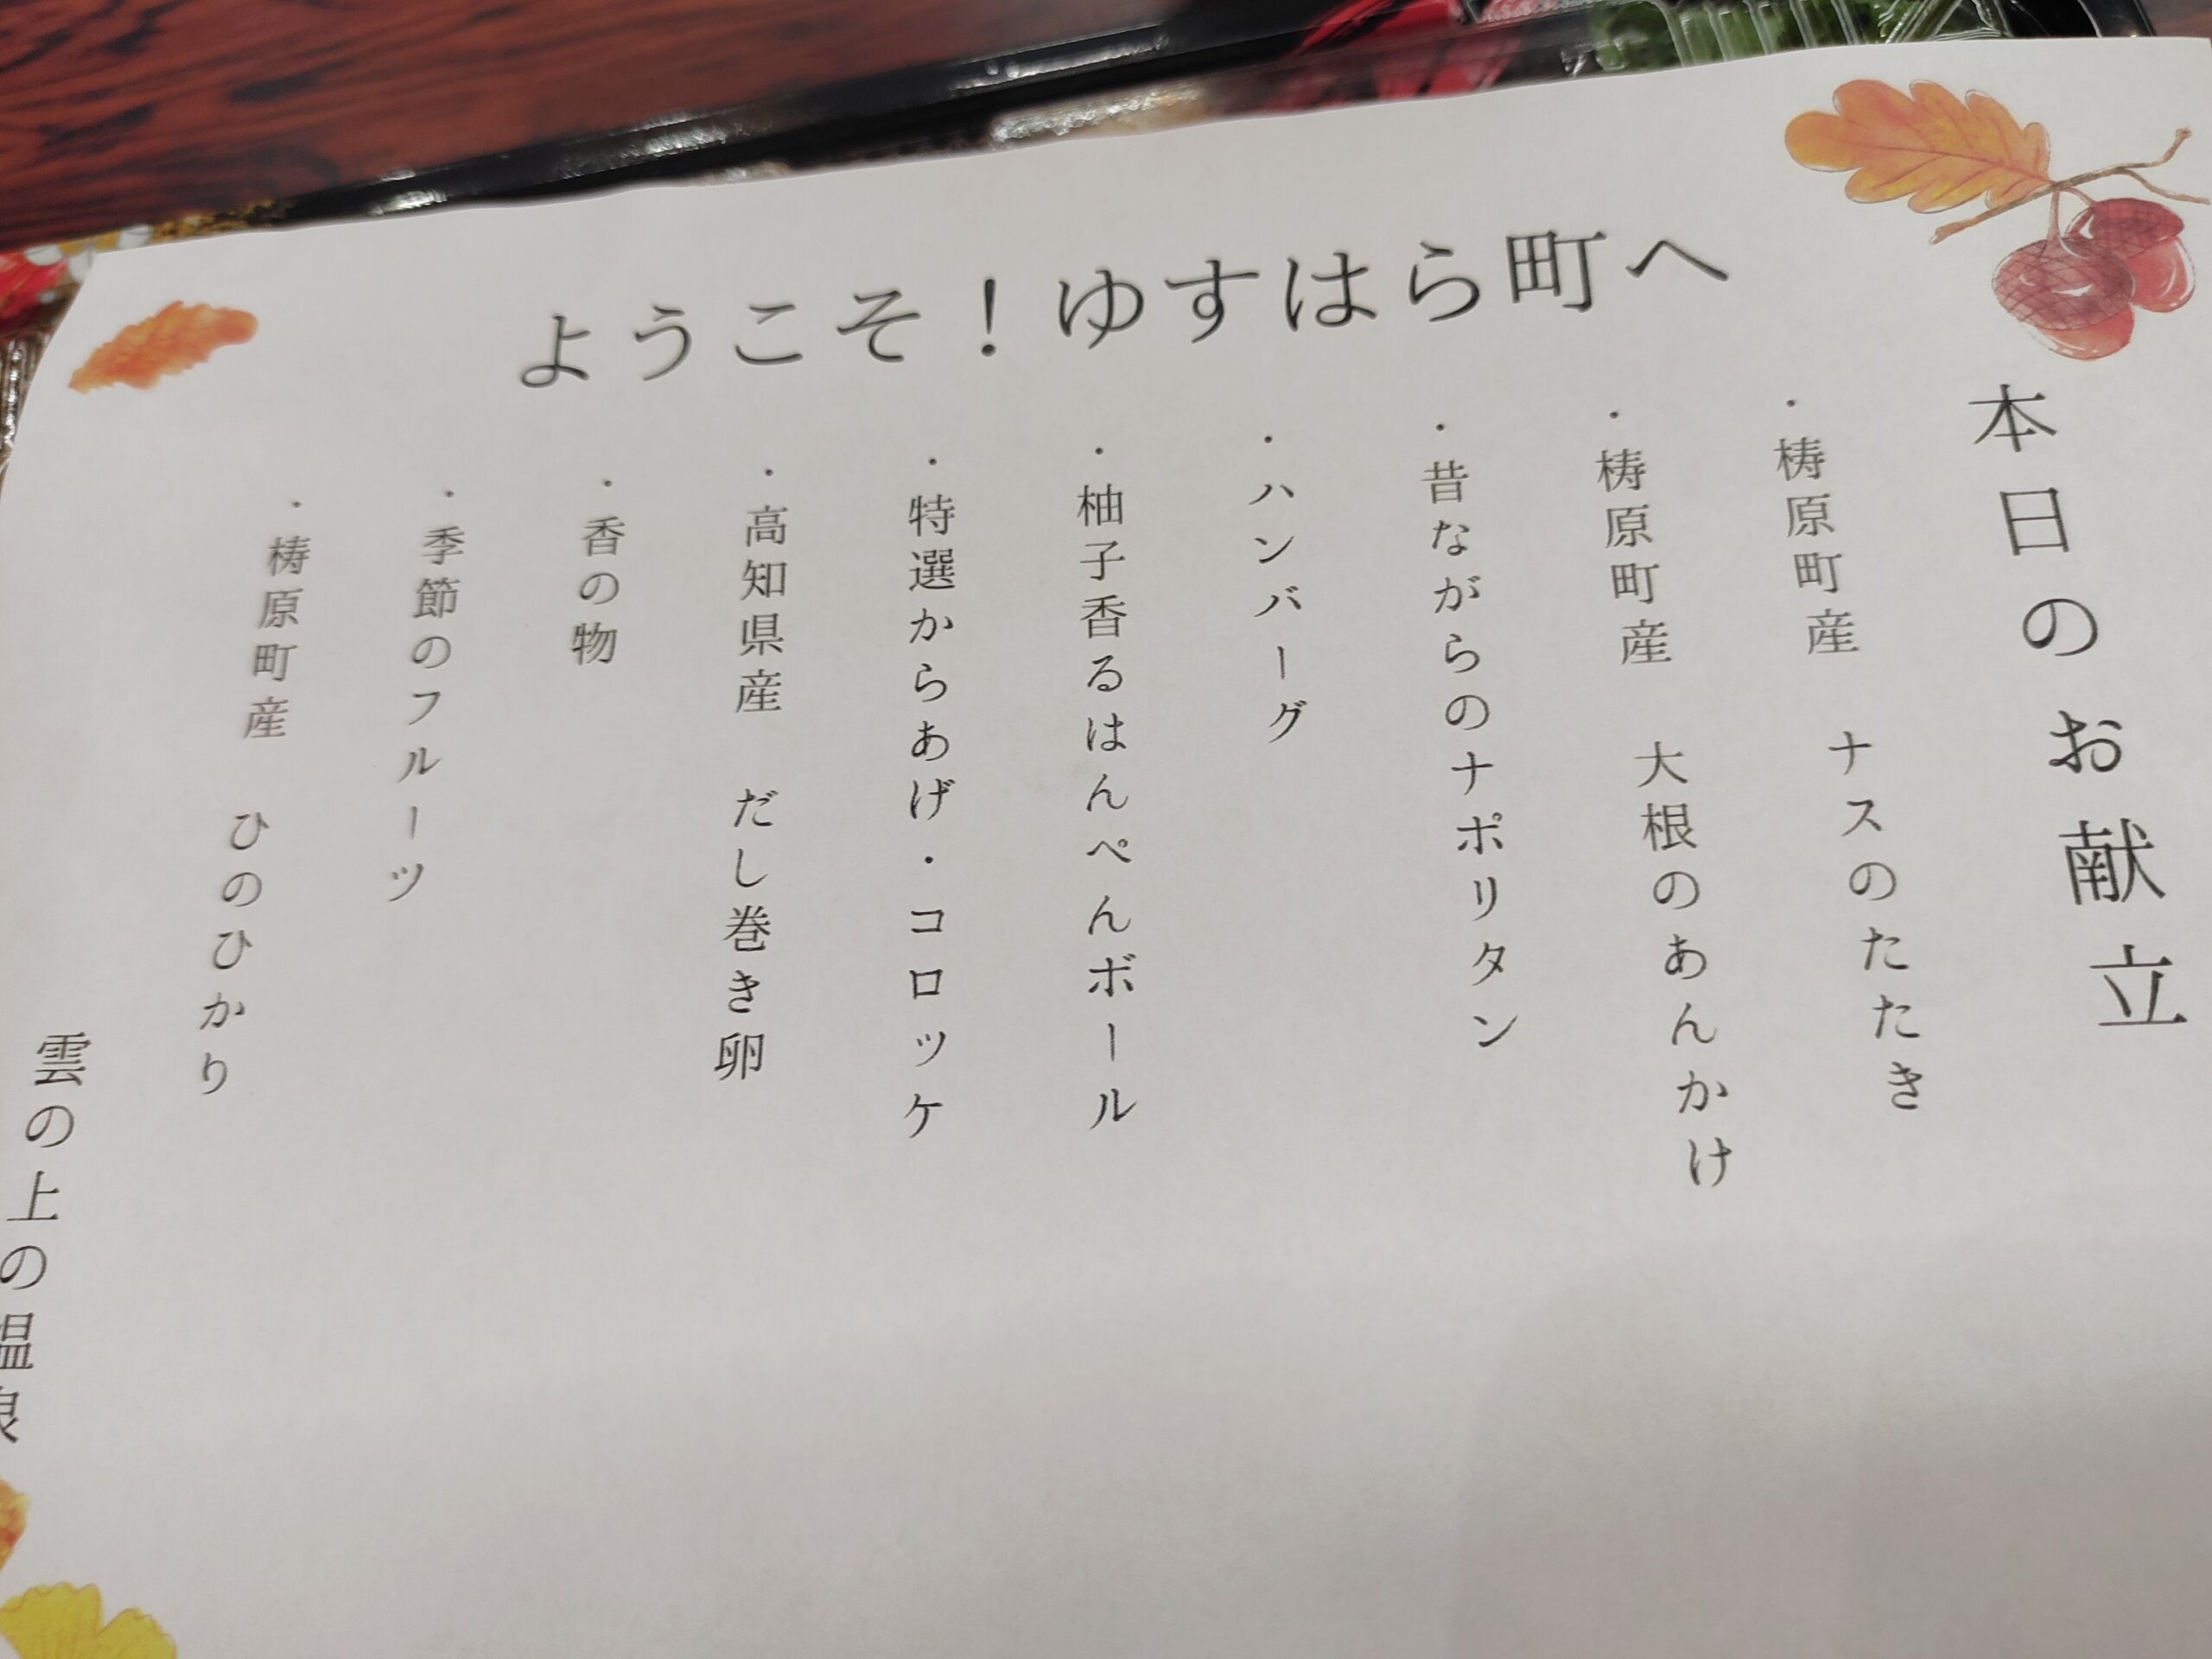 ようこそ！ゆすはら町へ
本日のお献立
・梼原町産　ナスのたたき
・梼原町産　大根のあんかけ
・昔ながらのナポリタン
・ハンバーグ
・柚子香るはんぺんボール
・特選からあげ・コロッケ
・高知県産　だし巻き卵
・香の物
・季節のフルーツ
・梼原町産　ひのひかり
雲の上の温泉